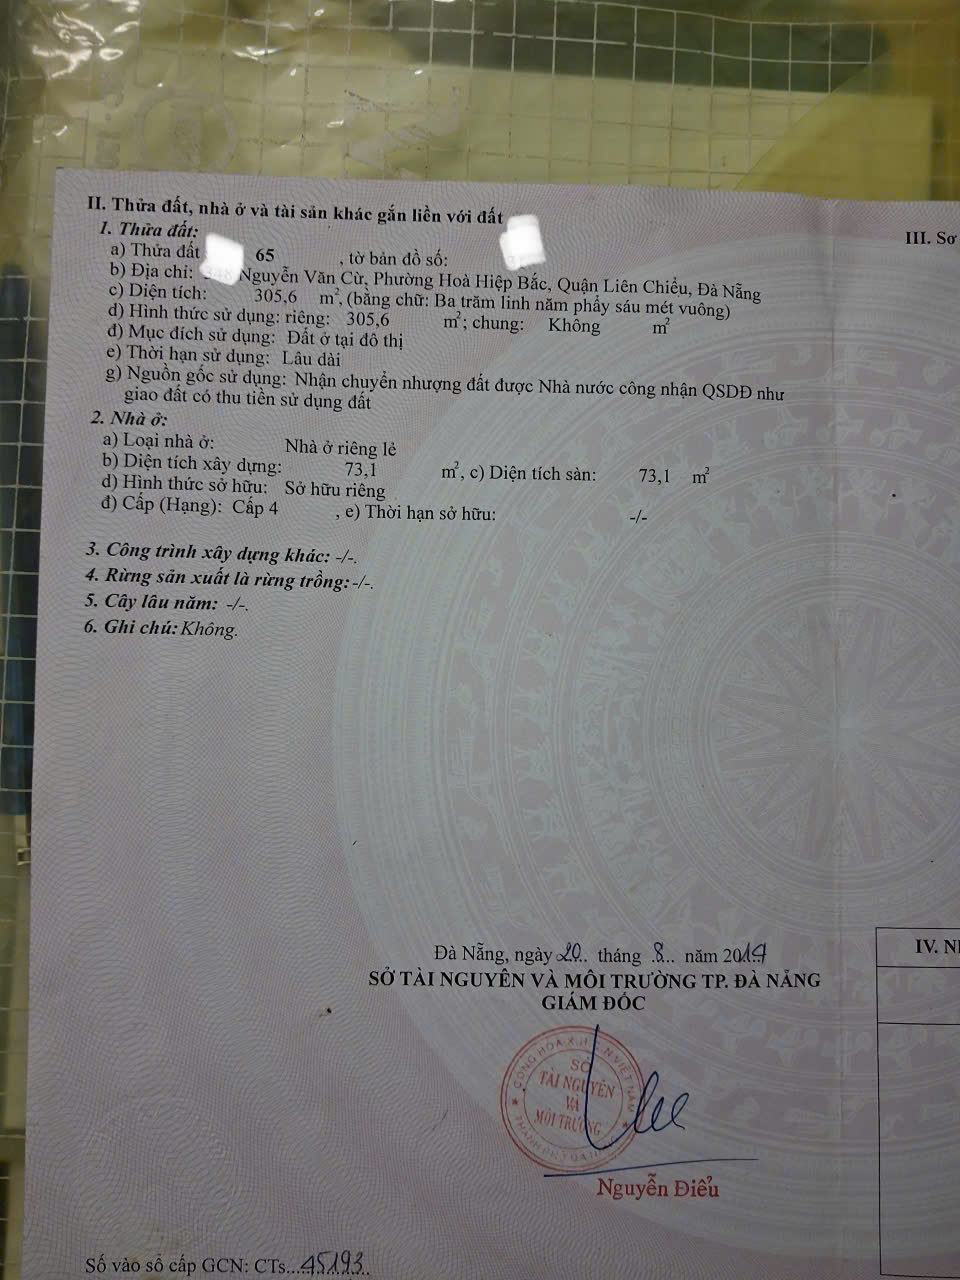 II. Thửa đất, nhà ở và tài sản khác gắn liền với đất
1. Thửa đất:
a) Thửa đất 65 , tờ bản đồ số:
b) Địa chỉ: Nguyễn Văn Cừ, Phường Hoà Hiệp Bắc, Quận Liên Chiểu, Đà Nẵng
c) Diện tích: 305,6 m², (bằng chữ: Ba trăm linh năm phẩy sáu mét vuông)
d) Hình thức sử dụng: riêng: 305,6 m²; chung: Không m²
đ) Mục đích sử dụng: Đất ở tại đô thị
e) Thời hạn sử dụng: Lâu dài
g) Nguồn gốc sử dụng: Nhận chuyển nhượng đất được Nhà nước công nhận QSDĐ như
giao đất có thu tiền sử dụng đất
2. Nhà ở:
a) Loại nhà ở: Nhà ở riêng lẻ
b) Diện tích xây dựng: 73,1 m², c) Diện tích sàn: 73,1 m²
d) Hình thức sở hữu: Sở hữu riêng
đ) Cấp (Hạng): Cấp 4 , e) Thời hạn sở hữu: -/-
3. Công trình xây dựng khác: -/-.
4. Rừng sản xuất là rừng trồng: -/-.
5. Cây lâu năm: -/-.
6. Ghi chú: Không.
III. Sơ
Đà Nẵng, ngày 20.. tháng .8.. năm 2014
SỞ TÀI NGUYÊN VÀ MÔI TRƯỜNG TP. ĐÀ NẴNG
GIÁM ĐỐC
SỞ
TÀI NGUYÊN
VÀ
MÔI TRƯỜNG
Nguyễn Điểu
IV. N
Số vào sổ cấp GCN: CTs...45193